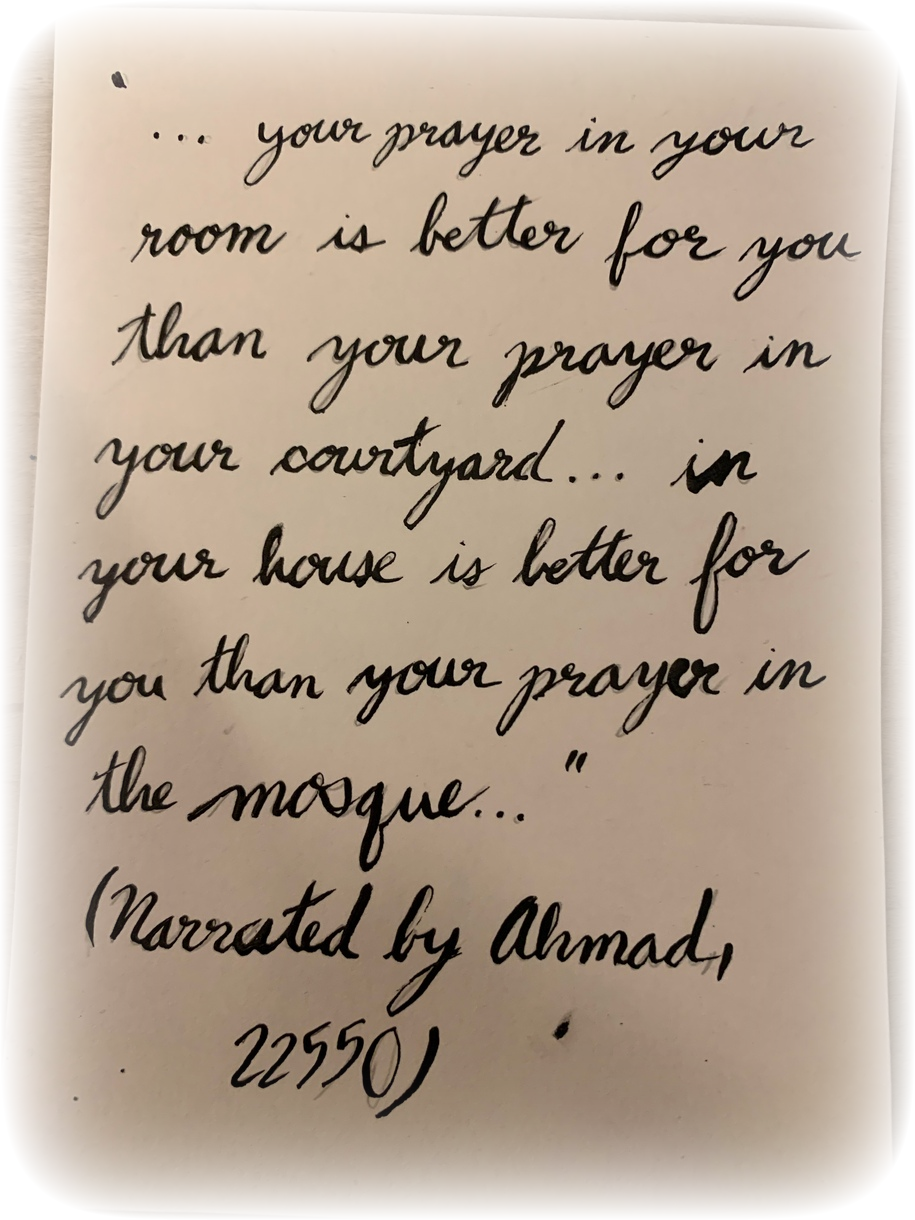 ... your prayer in your
room is better for you
than your prayer in
your courtyard... in
your house is better for
you than your prayer in
the mosque..."
(Narrated by Ahmad,
22550)